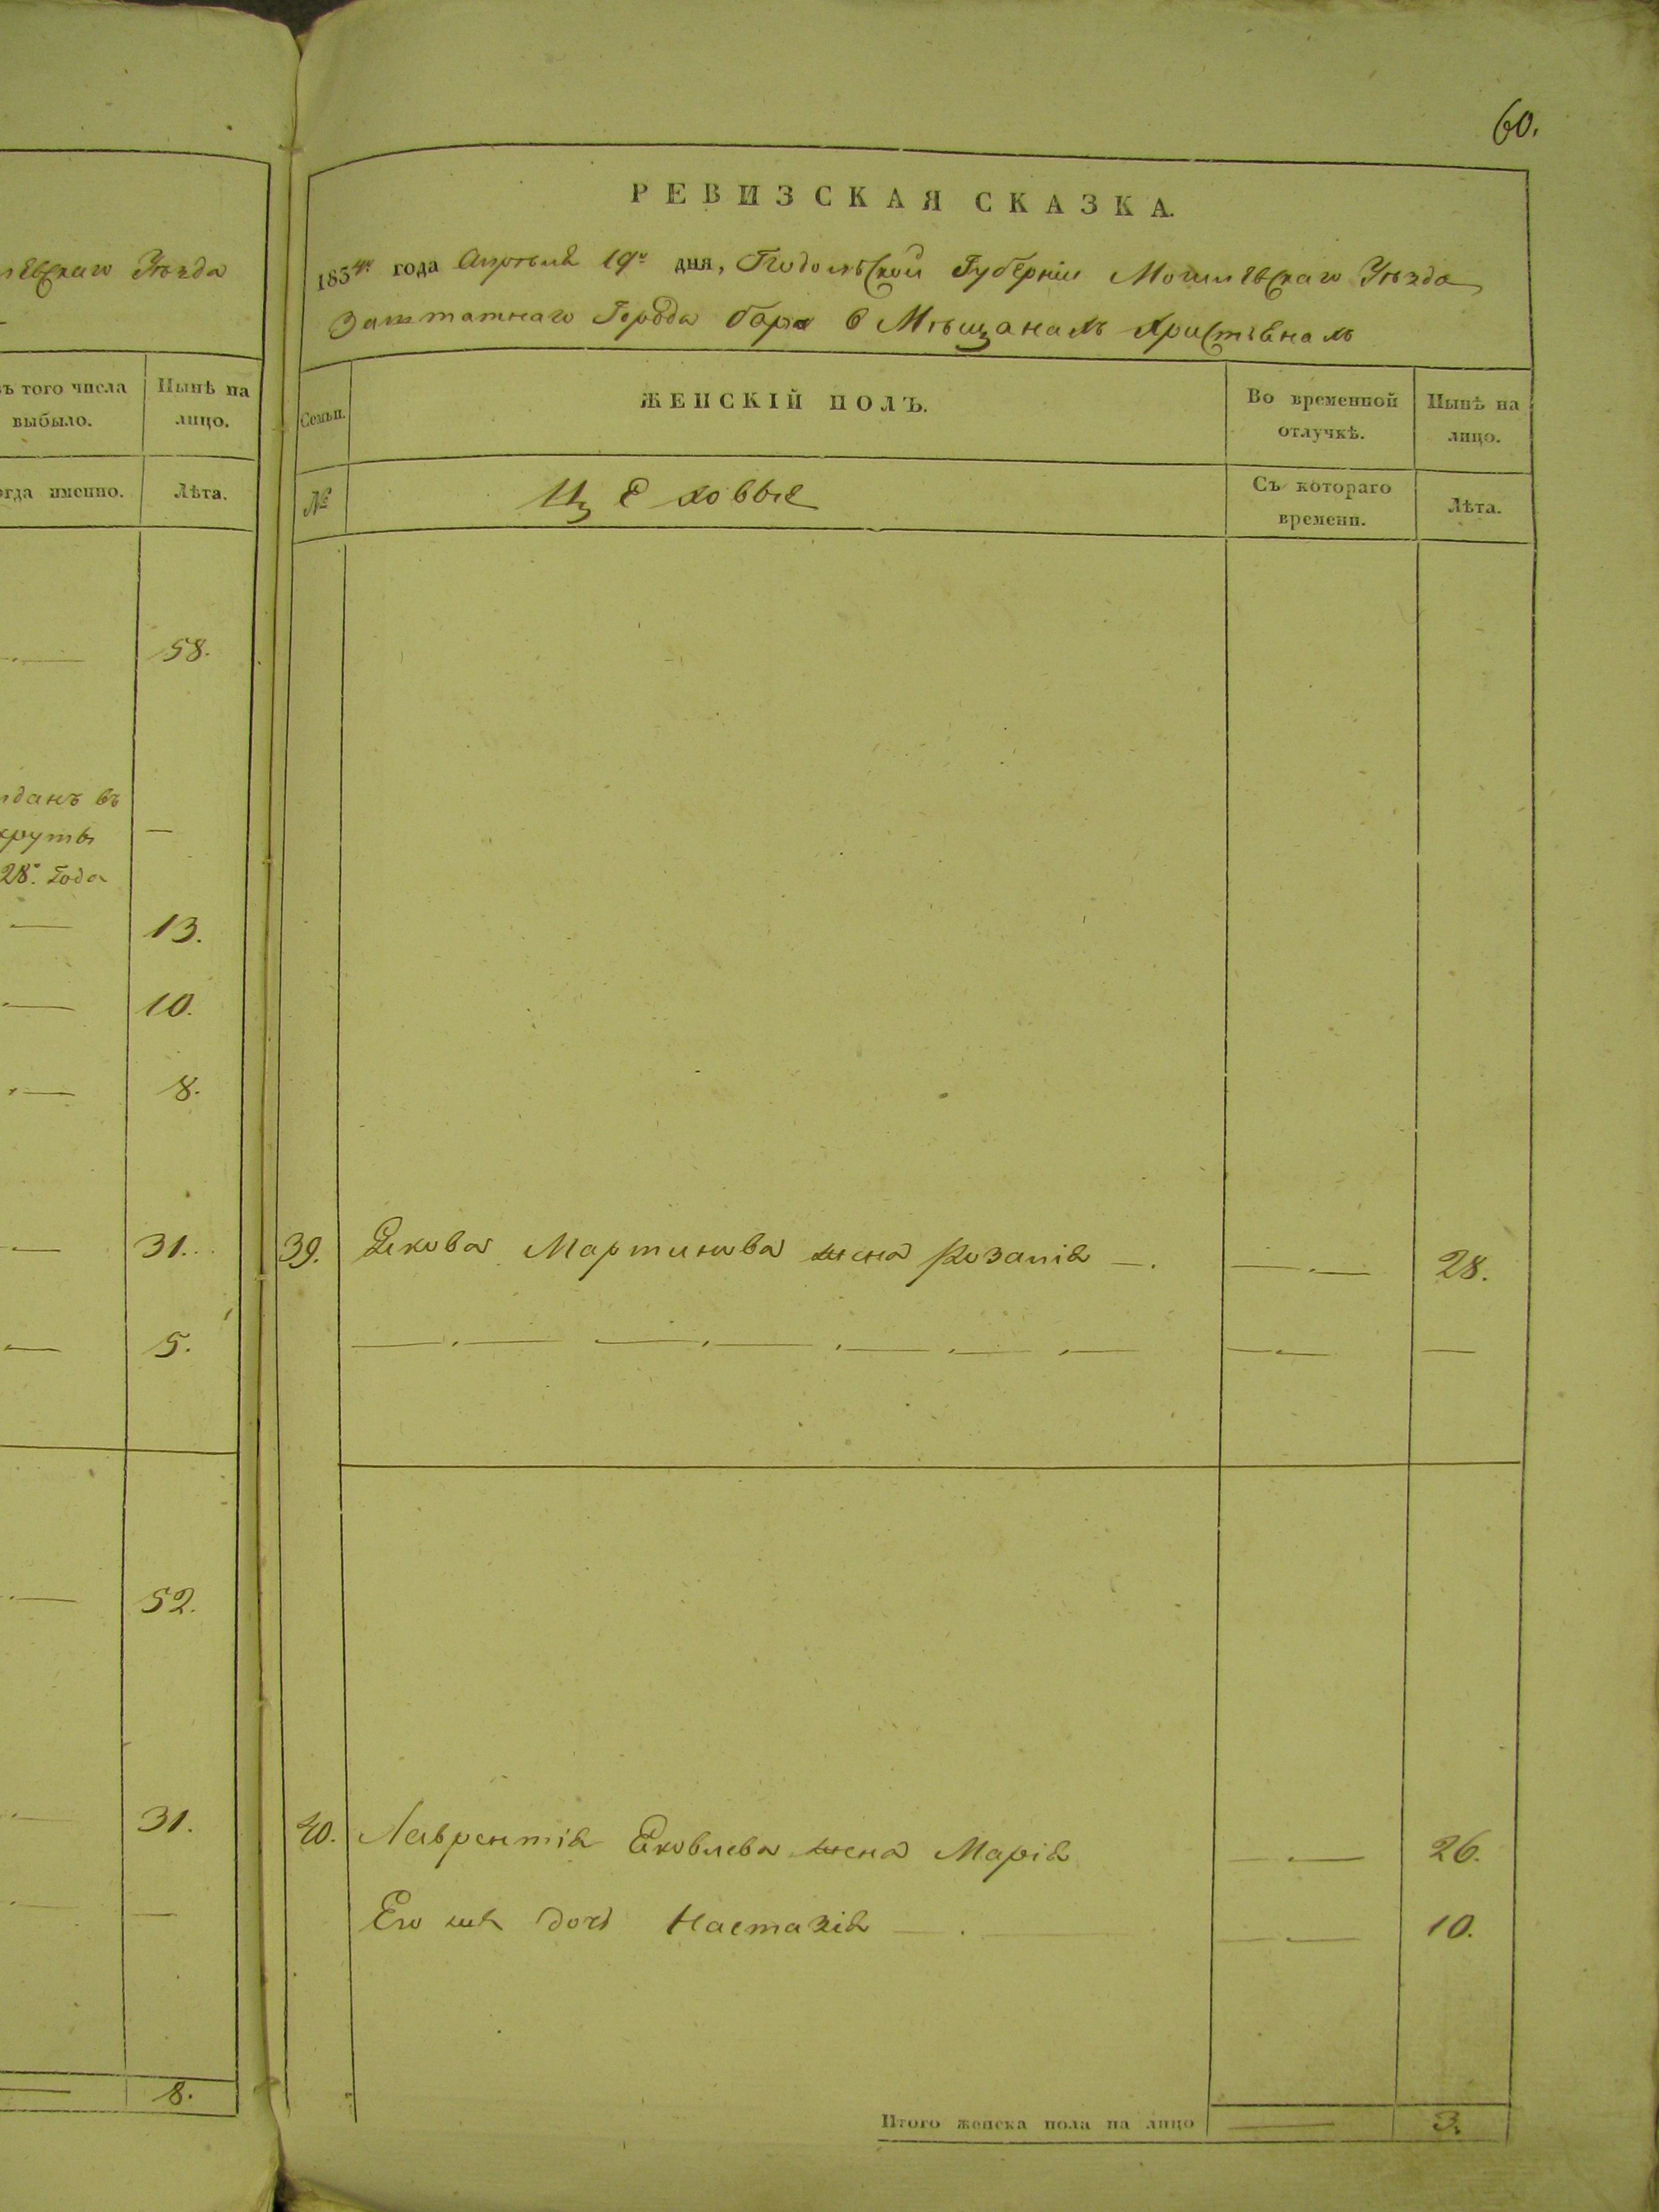 60.
лѣвскаго Уѣзда
ъ того числа
выбыло.
Нынѣ на
лицо.
огда именно.
Лѣта.
58.
тданъ въ
круты
28го года
13.
10.
8.
31.
5.
52.
31.
8.
РЕВИЗСКАЯ СКАЗКА.
1834го года Апрѣля 19го дня, Подольской Губерніи Могилевскаго Уѣзда
Заштатнаго Города бара о Мѣщанахъ Христіянахъ
Семьи.
ЖЕНСКІЙ ПОЛЪ.
Во временной
отлучкѣ.
Нынѣ на
лицо.
№
Цеховые
Съ котораго
времени.
Лѣта.
39. Якова Мартинова жена Розалія —. — . — 28.
40. Лаврентія Яковлева жена Марія — . — 26.
Его же дочь Настазія — . — — . — 10.
Итого женска пола на лицо — 3.